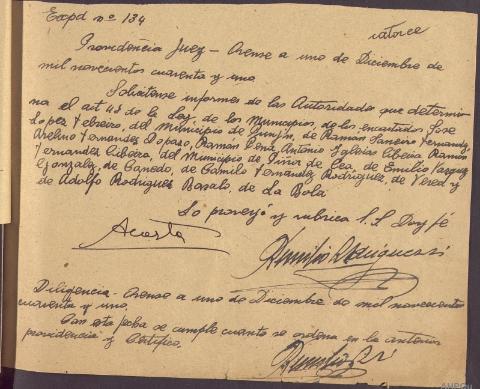 Expd nº 134
catorce
Providencia Juez - Orense a uno de Diciembre de
mil novecientos cuarenta y uno
Solicitense informes de las Autoridades que determi-
na el art 48 de la Ley, de los Municipios, de los encartados Jose
Lopez Febreiro, del Municipio de Gunjin, de Ramon Fernandez
Avelino Fernandez Ramon Pena Antonio Iglesias Ramon
Fernandez Ribeira, del Municipio de Piñor de Cea, de Emilio Vazquez
Gonzalez, de Canedo, de Camilo Fernandez Rodriguez, de Vered y
de Adolfo Rodriguez Basalo, de La Bola
Lo proveyó y rubrica S.S. Doy fé
Acosta
Diligencia - Orense a uno de Diciembre de mil novecientos
cuarenta y uno
Con esta fecha se cumple cuanto se ordena en la anterior
providencia y Certifico.